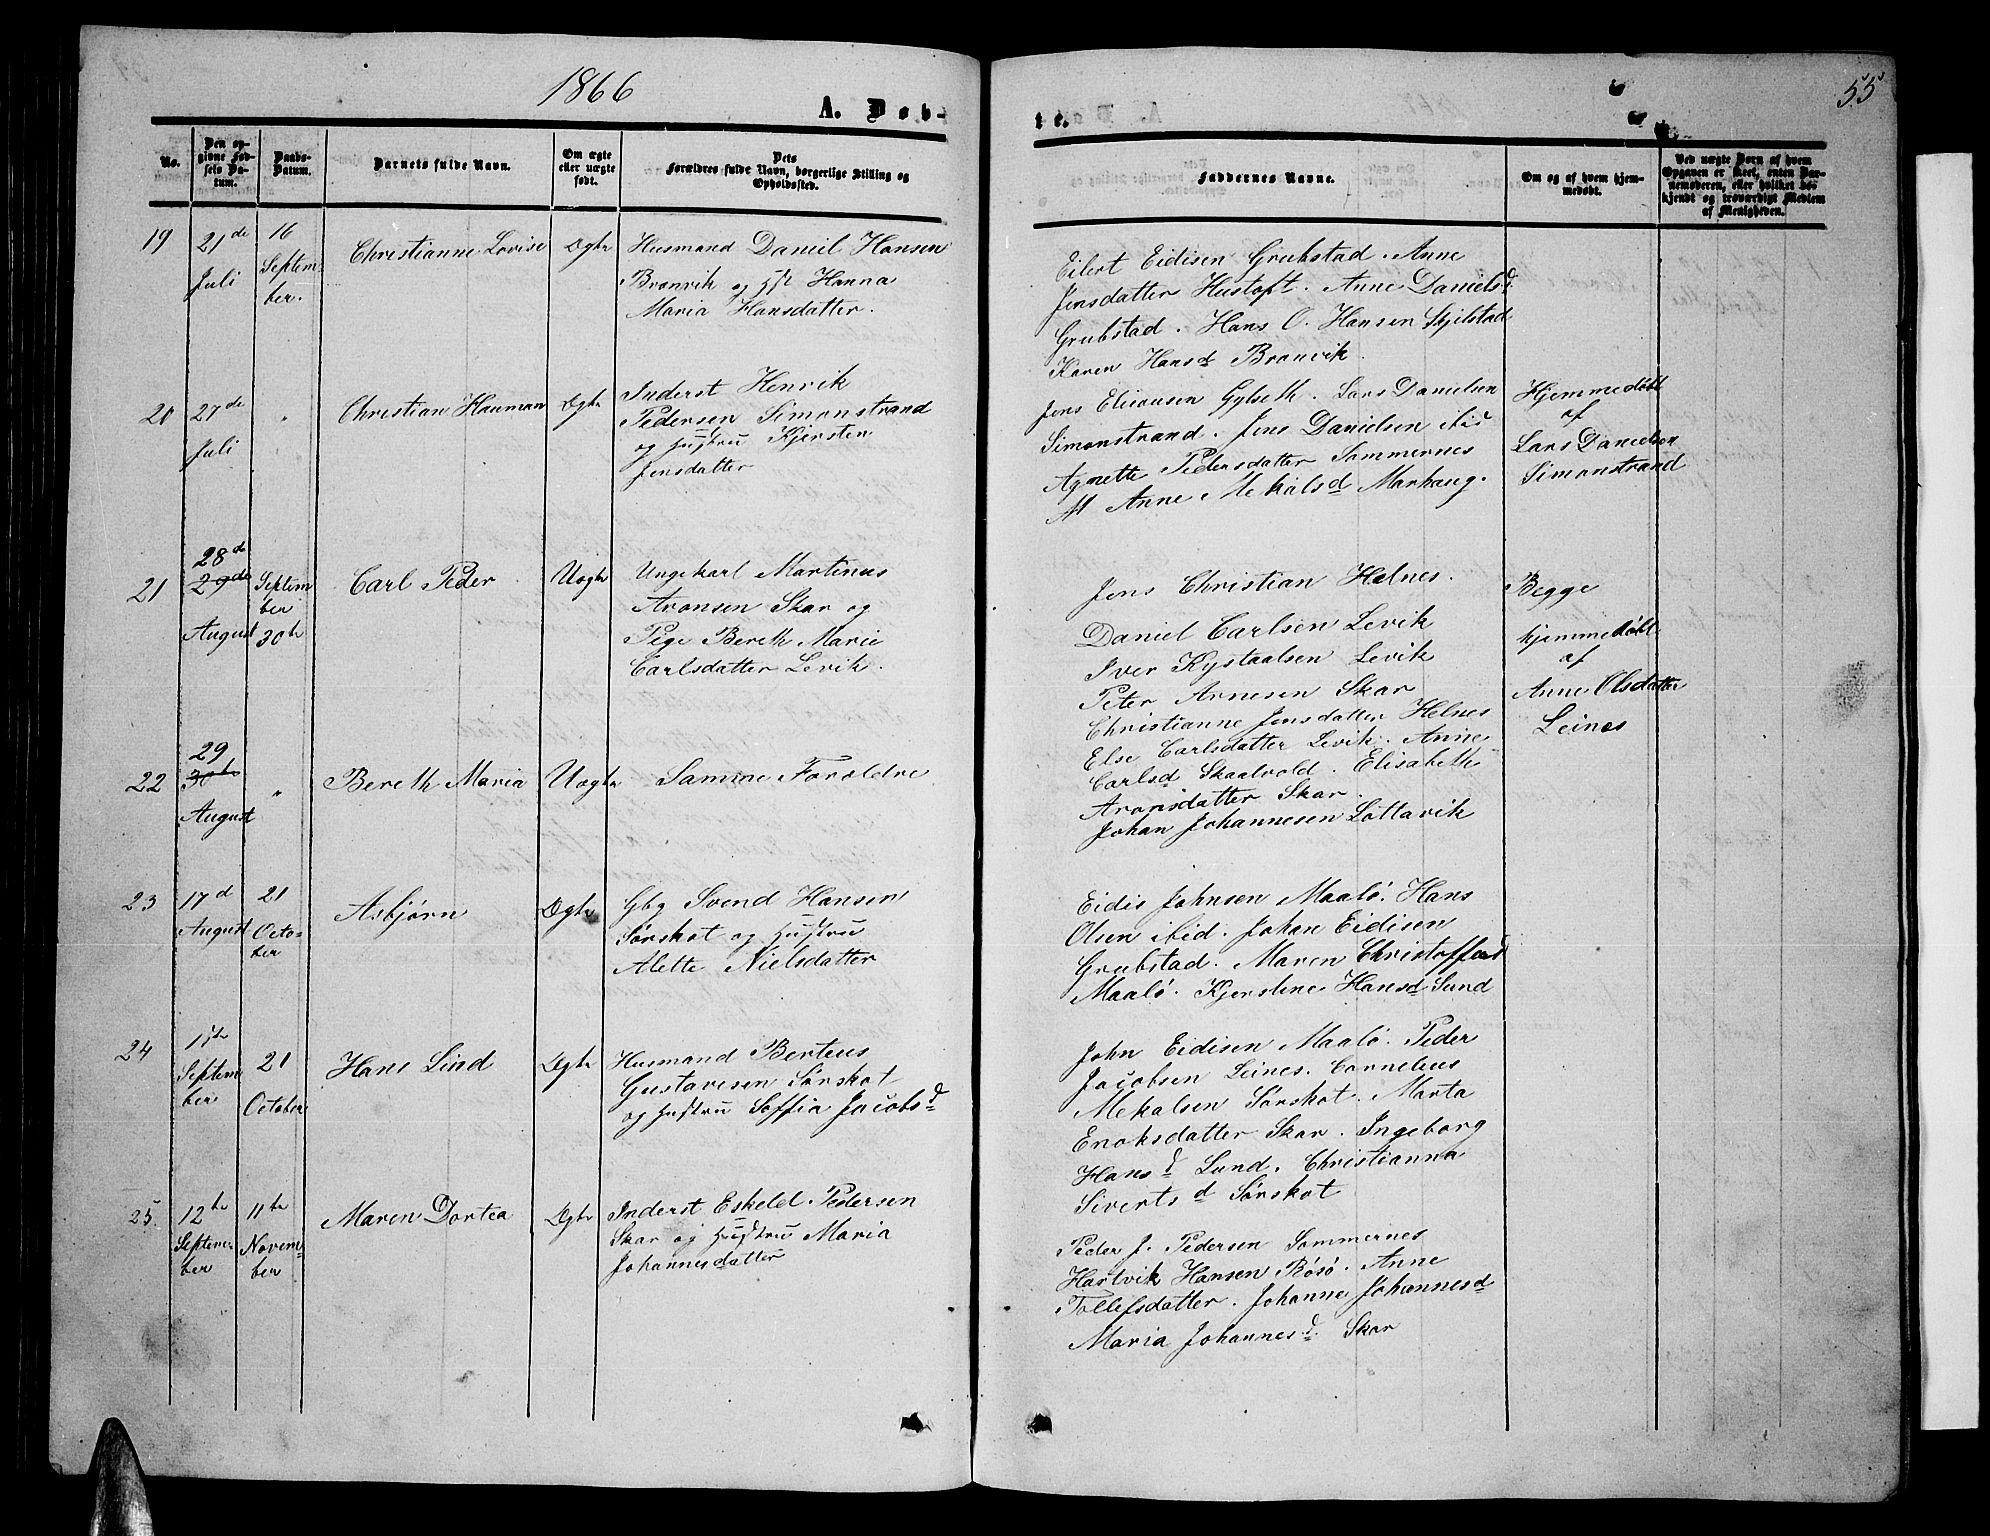 1866
55
A. Døb-
te.
No.
Den op-
givne Fød-
sels Da-
tum.
Daabs-
Datum.
Barnets fulde Navn.
Om ægte
eller uægte
født.
Dets
Forældres fulde Navn, borgerlige Stilling og
Opholdssted.
Faddernes Navne.
Om og af hvem hjem-
medøbt.
Ved uægte Børn af hvem
Opgaven er skeet, enten Bar-
nemoderen, eller hvilket be-
kjendt og troværdigt Medlem
af Menigheden.
19
21de
Juli
16
Septem-
ber.
Christianne Lovise
Ægte
Husmand Daniel Hansen
Bronvik og Hst Hanna
Maria Hansdatter.
Eilert Eidisen Grubstad. Anne
Jensdatter Hustoft. Anne Danielsd
Grubstad. Hans O. Hansen Skjelstad
Karen Hansd Bronvik.
20
27de
Juli
"
Christian Hauman
Ægte
Inderst Henrik
Pedersen Simonstrand
og Hustru Kjersten
Jensdatter
Jens Eliausen Gylseth. Lars Danielsen
Simonstrand. Jens Danielsen ibid
Agnette Pedersdatter Sommernes
M Anne Mekalsd Marhaug.
Hjemmedøbt
af
Lars Danielsen
Simonstrand
21
28de
29de
August
Septem
ber
30te
Carl Peder
Uægte
Ungekarl Martinus
Aronsen Skar og
Pige Bereth Marie
Carlsdatter Levik.
Jens Christian Helnes.
Daniel Carlsen Levik
Iver Kystaalsen Levik
Peter Arnesen Skar
Christianne Jensdatter Helnes
Else Carlsdatter Levik. Anne
Carlsd Skaalvold. Elisabeth
Aronsdatter Skar.
Johan Johannesen Lottavik
Begge
hjemmedøbt
af
Anne Olsdatter
Leines
22
29
30te
August
"
Bereth Maria
Uægte
Samme Forældre
23
17d
August
21
Octo-
ber
Asbjørn
Ægte
Gbg Svend Hansen
Sørskot og Hustru
Alette Nielsdatter
Eidis Johnsen Maalø. Hans
Olsen ibid. Johan Eidisen
Grubstad. Maren Christoffersd
Maalø. Kjerstine Hansd Lund
24
Septem
ber
21
October
Hans Lind
Ægte
Husmand Berteus
Gustavesen Sørskot
og Hustru Soffia Jacobsd
John Eidisen Maalø. Peder
Jacobsen Leines. Cornelius
Mekalsen Sørskot. Marta
Enoksdatter Skar. Ingeborg
Hansd Lund. Christianna
Sivertsd Sørskot
25.
12te
Septem-
ber
11te
Novem-
ber
Maren Dortea
Ægte
Inderst Eskeld Pedersen
Skar og Hustru Maria
Johannesdatter
Peder J. Pedersen Sommernes
Hartvik Hansen Røsø. Anne
Tollefsdatter. Johanne Johannesd
Maria Johannesd. Skar